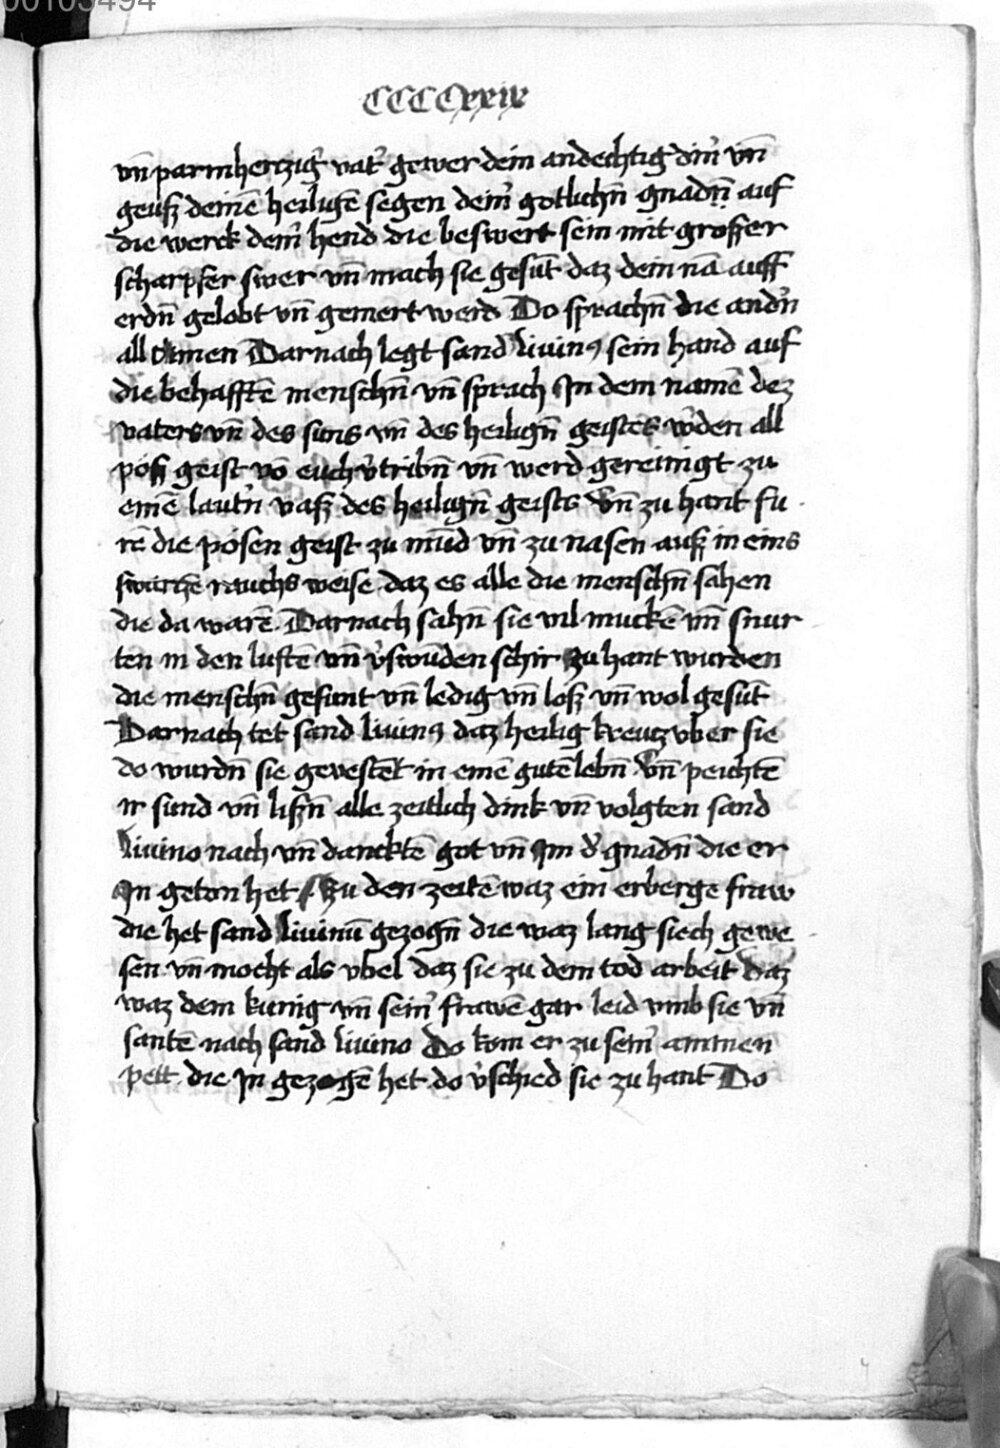 00103494
CCCCxxix
vn̄ parmhertzig᷑ vat᷑ gewer dein andechtig din᷑ vn̄
geusz deinē heiligē segen dein᷑ gotlichn̄ gnadn̄ auf
die werck dein᷑ hend die beswert sein mit grosser
scharpfer swer vn̄ mach sie gesūt daz dein nā auff
erdn̄ gelobt vn̄ gemert werd Do sprachn̄ die and᷑n
all amen Darnach legt sand liuinꝰ sein hand auf
die behafftē menschn̄ vn̄ sprach In dem namē dez
vaters vn̄ des suns vn̄ des heilign̄ geistes w᷑den all
pösz geist vō euch v᷑tribn̄ vn̄ werd gereinigt zu
einē laut᷑n vasz des heilign̄ geists vn̄ zu hant fu
rē die pösen geist zu mūd vn̄ zu nasen ausz in eins
swartzē rauchs weise daz es alle die menschn̄ sahen
die da warē Darnach sahn̄ sie vil muckē vn̄ snur
ten in den luftē vn̄ v᷑swūden schir zu hant wurden
die menschn̄ gesunt vn̄ ledig vn̄ losz vn̄ wol gesūt
Darnach tet sand liuinꝰ daz heilig kreutz vber sie
do wurdn̄ sie gevestēt in einē gutē lebn̄ vn̄ peichtē
ir sund vn̄ liszn̄ alle zeitlich dink vn̄ volgten sand
liuino nach vn̄ dancktē got vn̄ Im d᷑ gnadn̄ die er
In getan het Zu den zeitē waz ein erberge fraw
die het sand liuinū gezogn̄ die waz lang siech gewe
sen vn̄ mocht als vbel daz sie zu dem tod arbeit daz
waz dem kunig vn̄ sein᷑ frawē gar leid vmb sie vn̄
santē nach sand liuino Do kom er zu sein᷑ ammen
pett die In gezogē het do v᷑schied sie zu hant Do